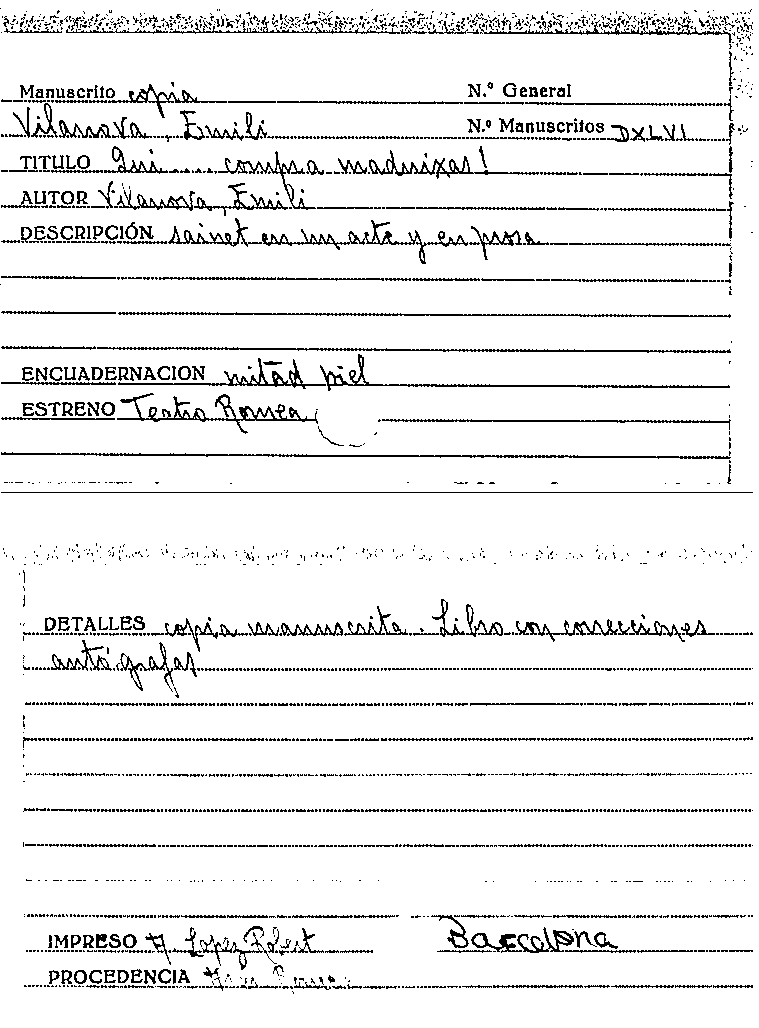 Manuscrito copia N.º General
Vilanova, Emili N.º Manuscritos DXLVI
TITULO Qui.... compra maduixas!
AUTOR Vilanova, Emili
DESCRIPCIÓN sainet en un acte y en prosa
ENCUADERNACION mitad piel
ESTRENO Teatro Romea
DETALLES copia manuscrita. Libro con correcciones
autógrafas
IMPRESO A. Lopez Robert Barcelona
PROCEDENCIA Romea